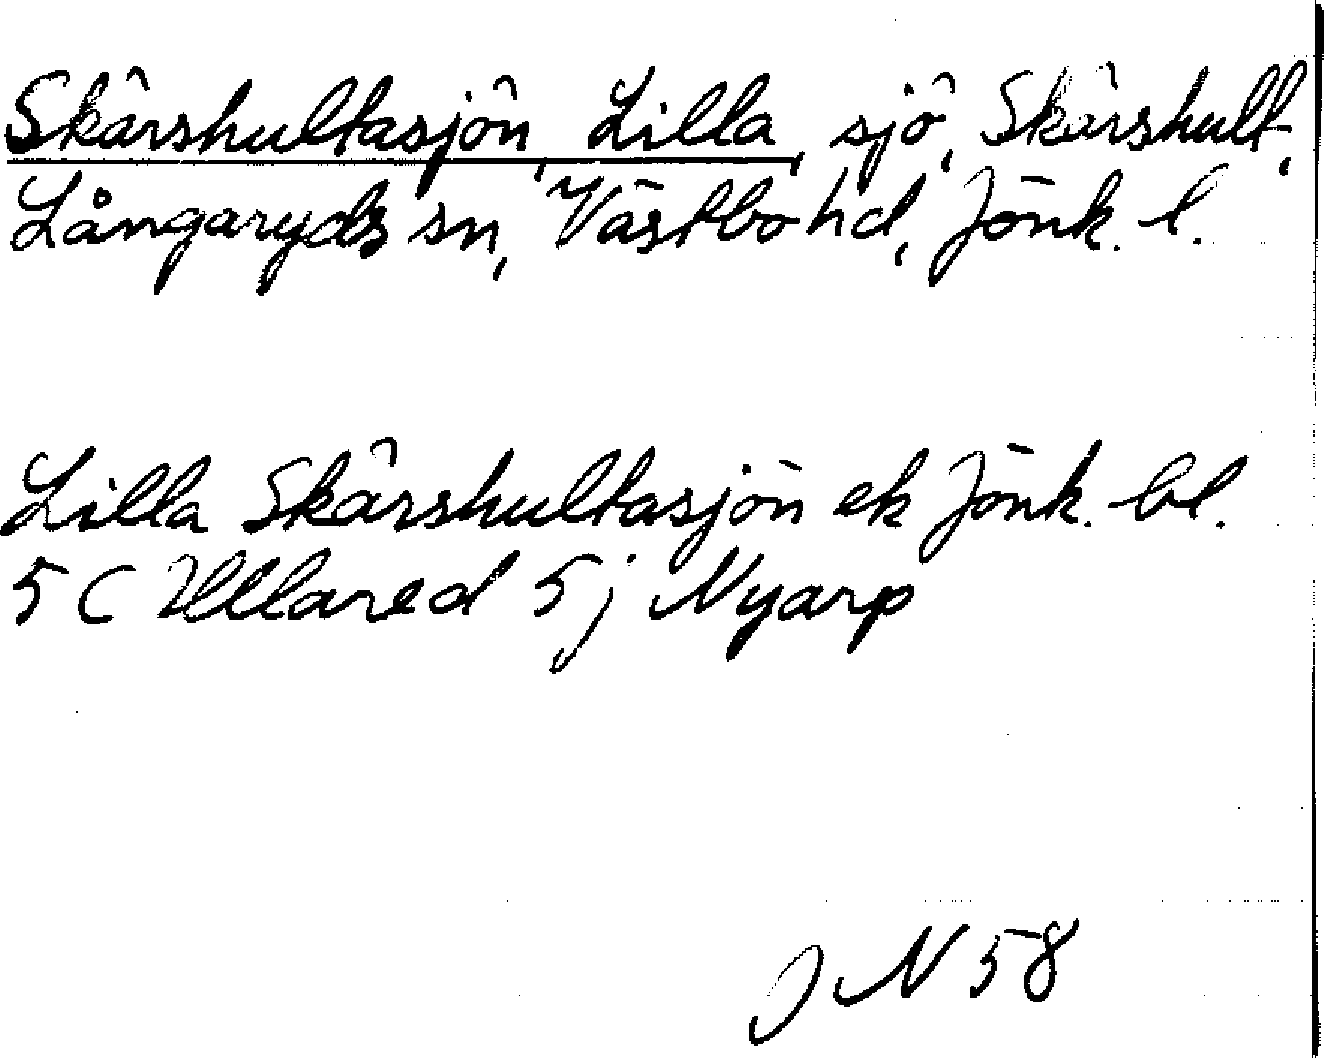 Skärshultasjön, Lilla, sjö, Skärshult,
Långaryds sn, Västbo hd, Jönk. l.
Lilla Skärshultasjön ek Jönk. bl.
5 C Ullared 5 j Nyarp
J N 58